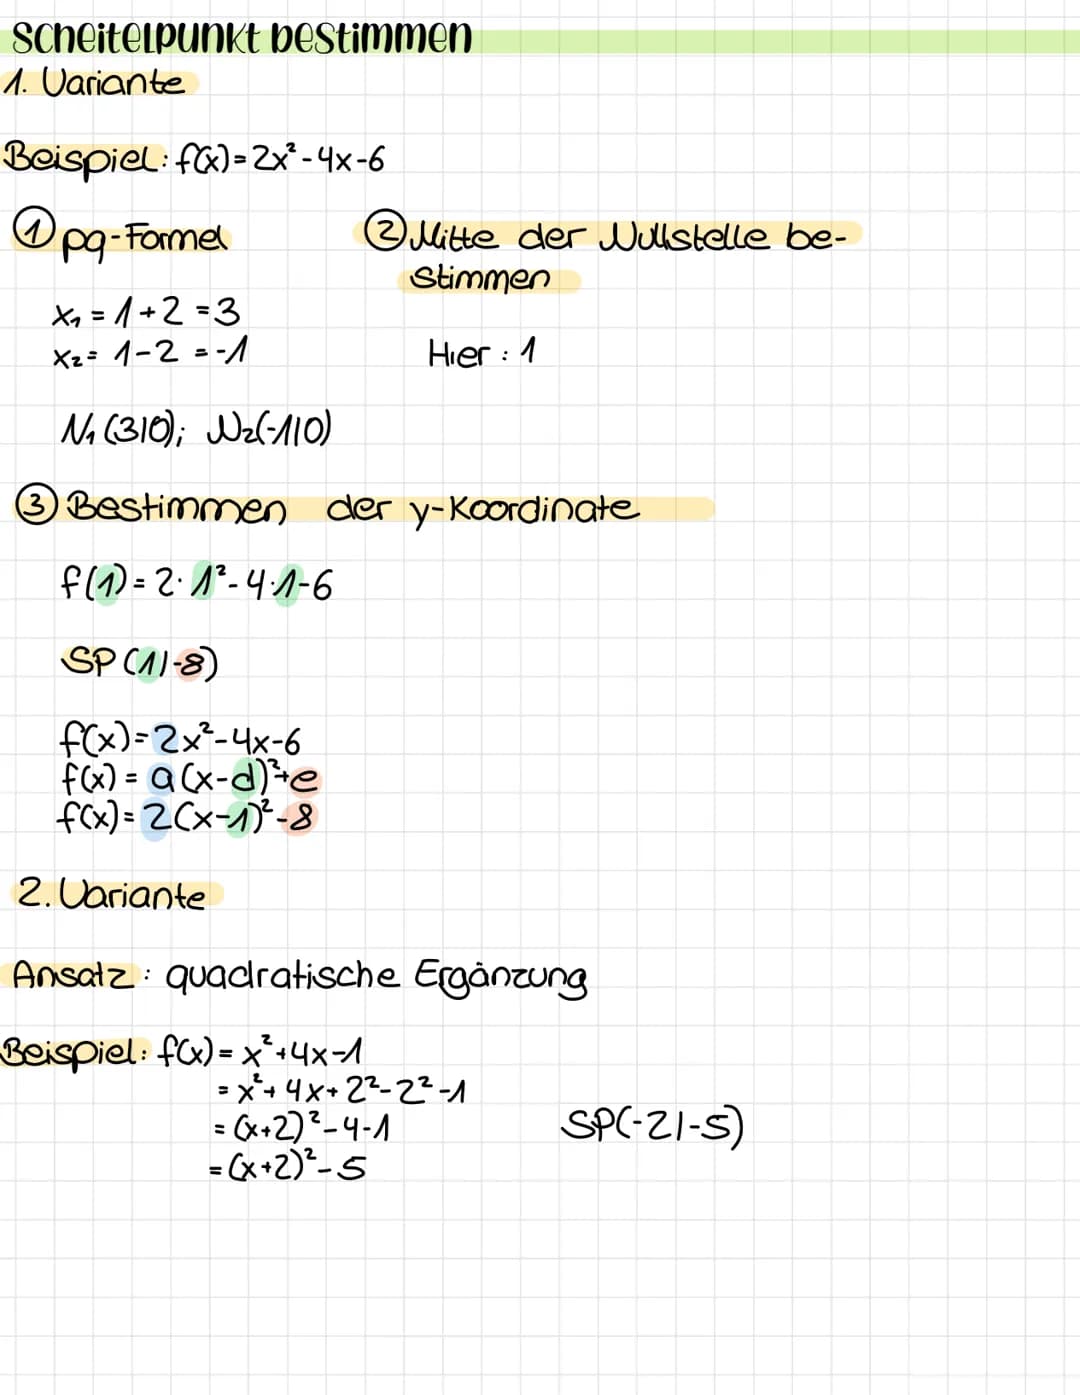 Scheitelpunkt bestimmen
1. Variante
Beispiel: f(x)=2x²-4x-6
① pq-Formel
② Mitte der Nullstelle be-
stimmen
x₁ = 1+2 = 3
x₂ = 1-2 = -1
Hier: 1
N₁(3|0); N₂(-1|0)
③ Bestimmen der y-Koordinate
f(1)=2·1²-4·1-6
SP(1|-8)
f(x)=2x²-4x-6
f(x)=a(x-d)²+e
f(x)=2(x-1)²-8
2. Variante
Ansatz: quadratische Ergänzung
Beispiel: f(x)=x²+4x-1
=x²+4x+2²-2²-1
=(x+2)²-4-1
SP(-2|-5)
=(x+2)²-5